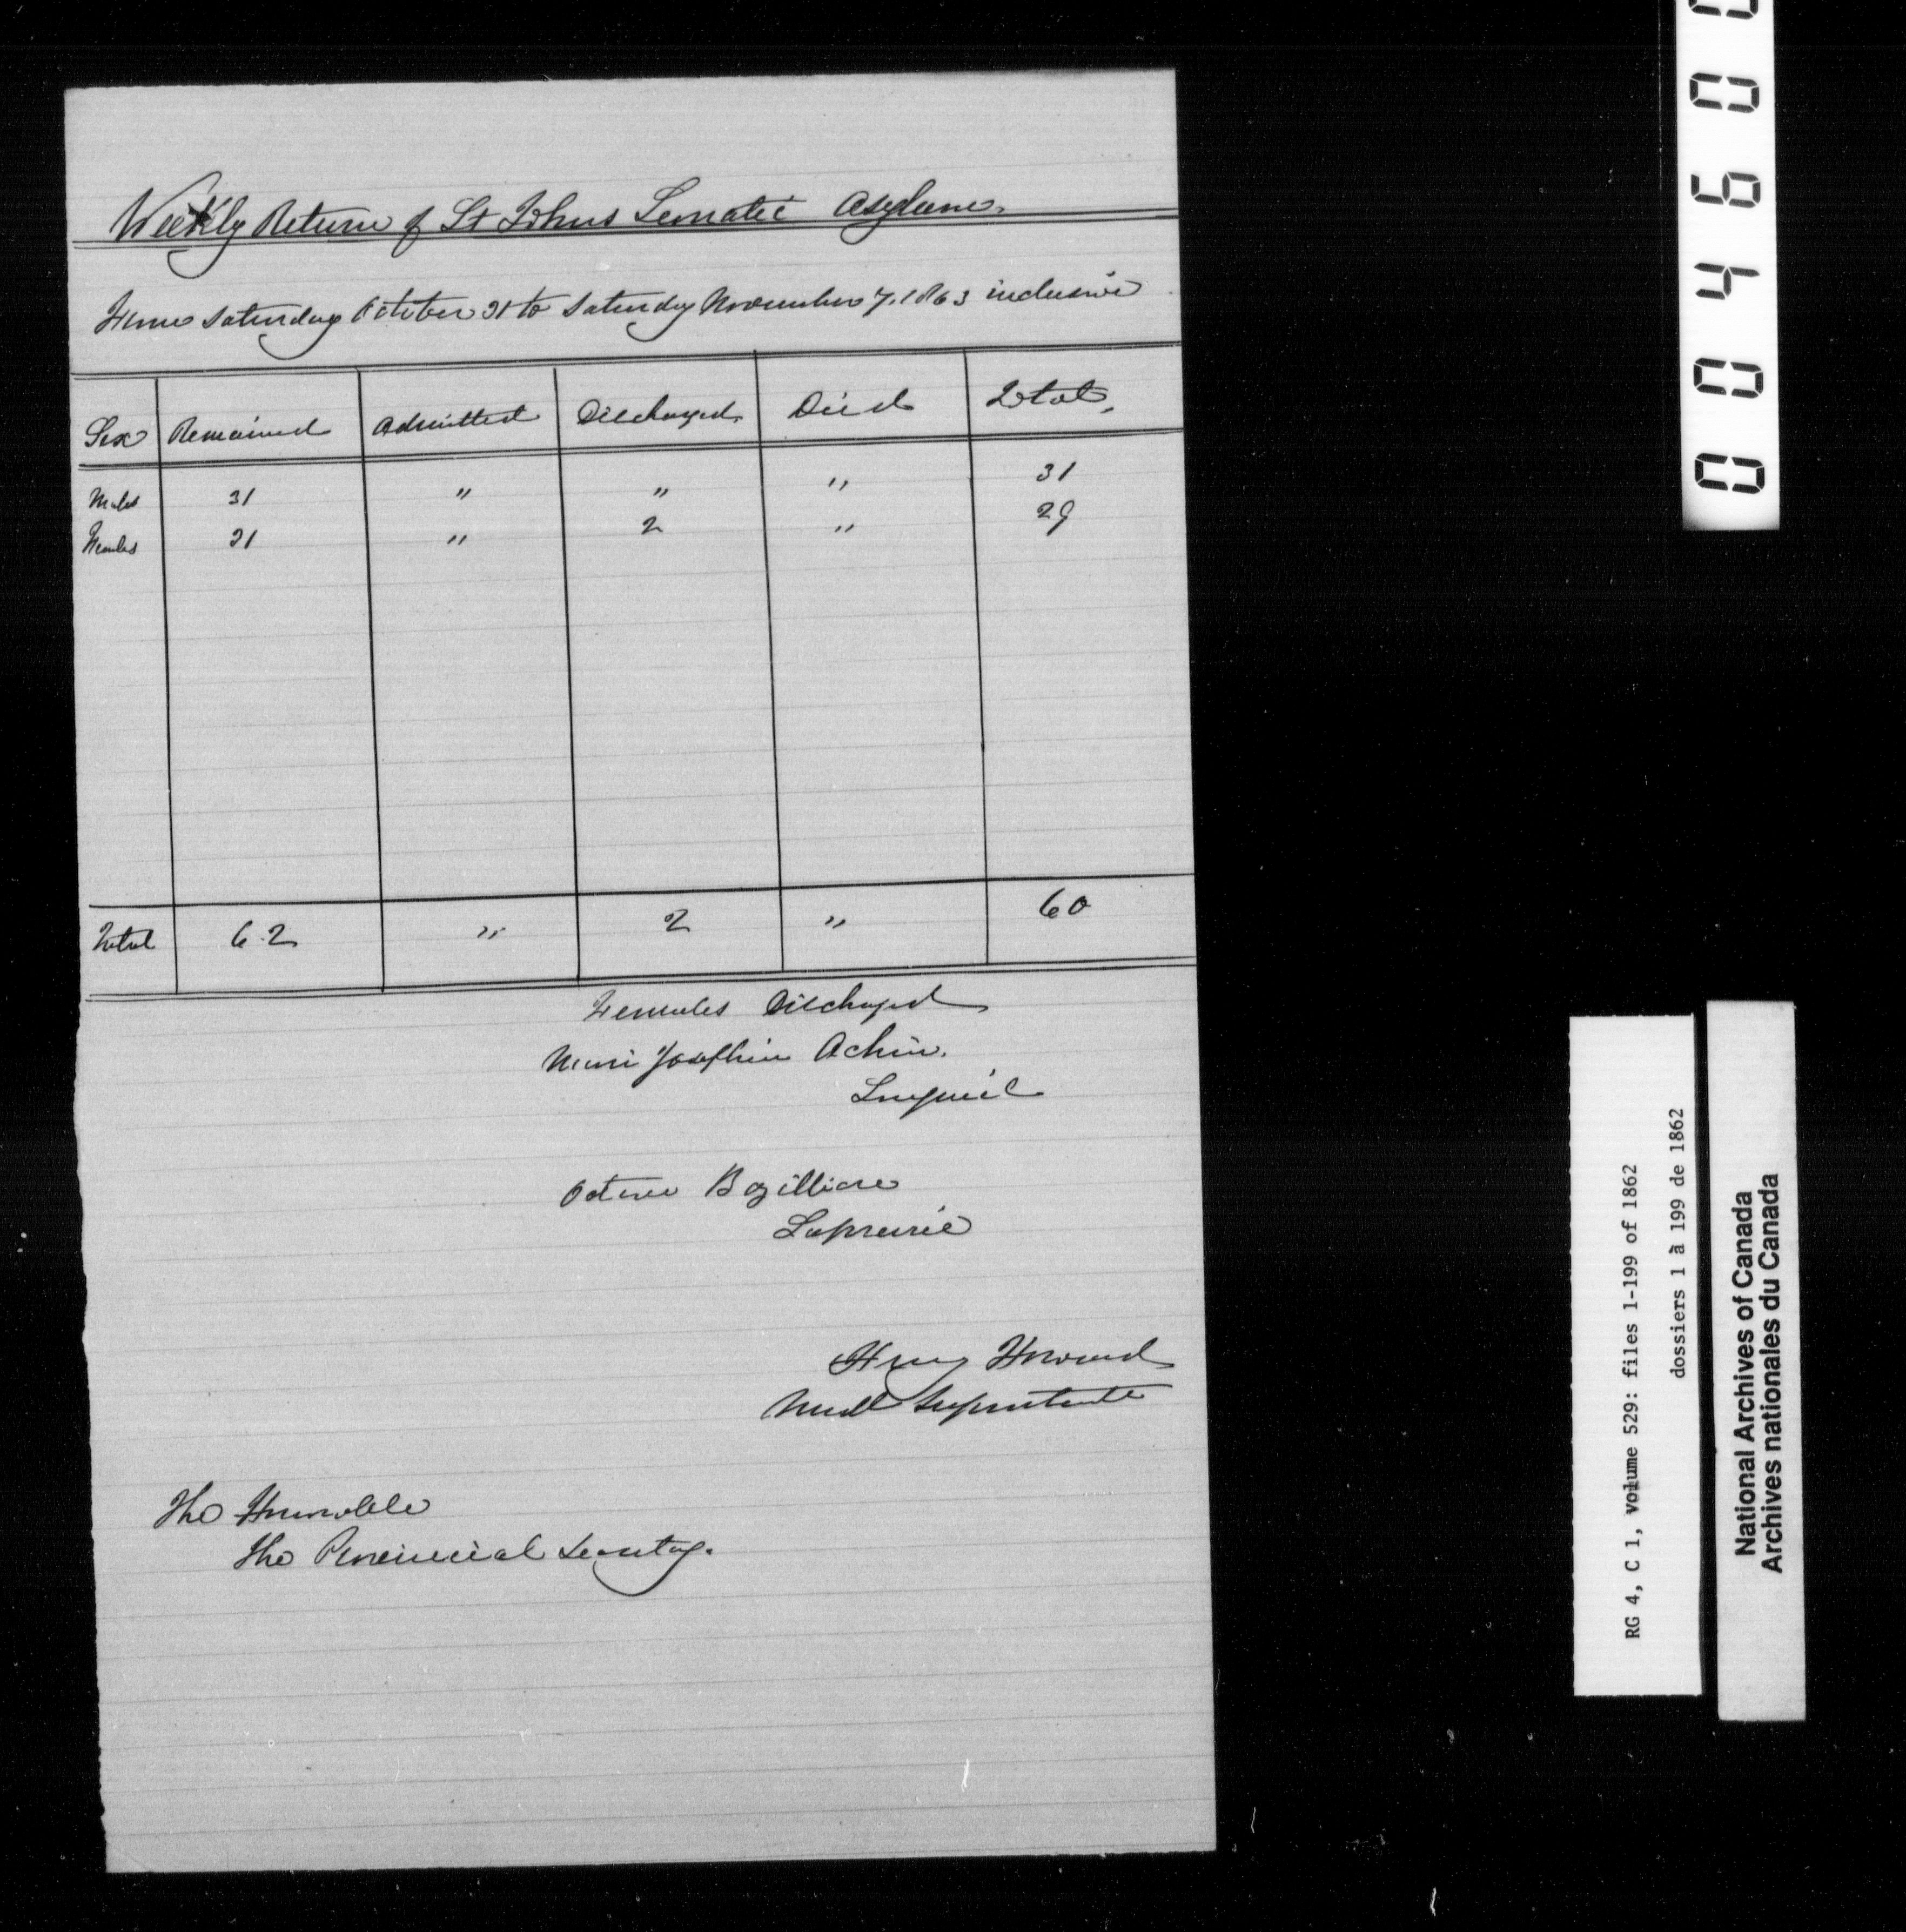 Weekly Return of St Johns Lunatic Asylum.
From Saturday October 31 to Saturday November 7. 1863 inclusive
Sex Remained Admitted Discharged Died Total.
Males 31 " " " 31
Females 31 " 2 " 29
Total 62 " 2 " 60
Females Discharged
Marie Josephine Achin.
Longueil
Bazilliare
Laprairie
Henry Howard
Medl Suprintendt
The Honorable
The Provincial Secretary.
0 0 4 6 0
RG 4, C 1, volume 529: files 1-199 of 1862
dossiers 1 à 199 de 1862
National Archives of Canada
Archives nationales du Canada